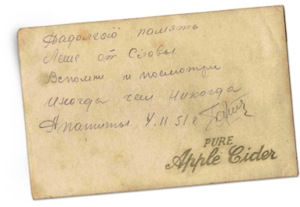 На долгою память
Леше от Славы
Вспомни и посмотри
иногда чем никогда
Апатиты 4.11 51 г
PURE
Apple Cider